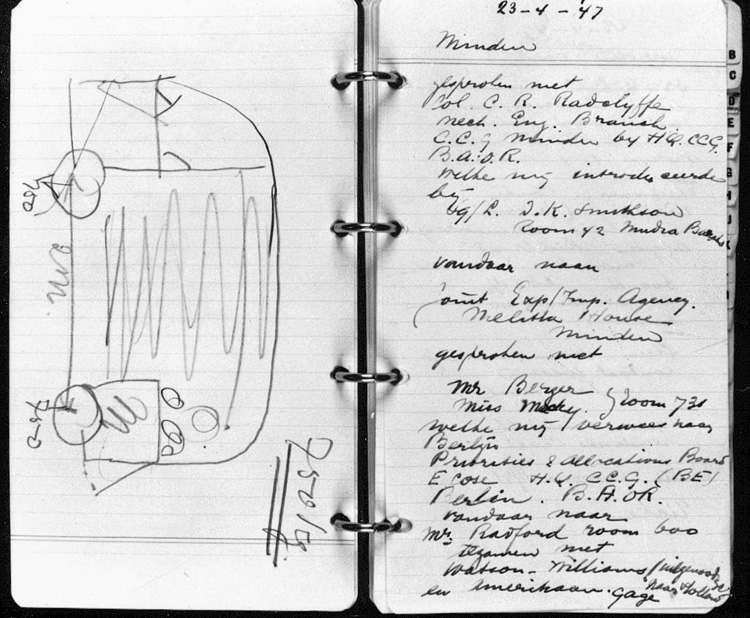 750
2 m.
750
750 kg
23-4-'47
Minden
gesproken met
Col. C. R. Radclyffe
Mech. Eng. Branch
C.C.G Minden by HQ. CCG.
B.A.O.R.
welke mij introduceerde
bij
I. K. Smithson
Room 42 Barracks
vandaar naar
Joint Exp/Imp. Agency.
Melitta House
Minden
gesproken met
Mr Berger
Miss Room 731
welke mij verwees naar
Berlijn
Priorities & Allocations Board
H.Q. CC.G. (BE)
Berlin. B.A.OR.
vandaar naar
Mr. Radford room 600
tezamen met
Watson-Williams
naar Holland
en Amerikaan. Gage
B
C
D
E
F
H